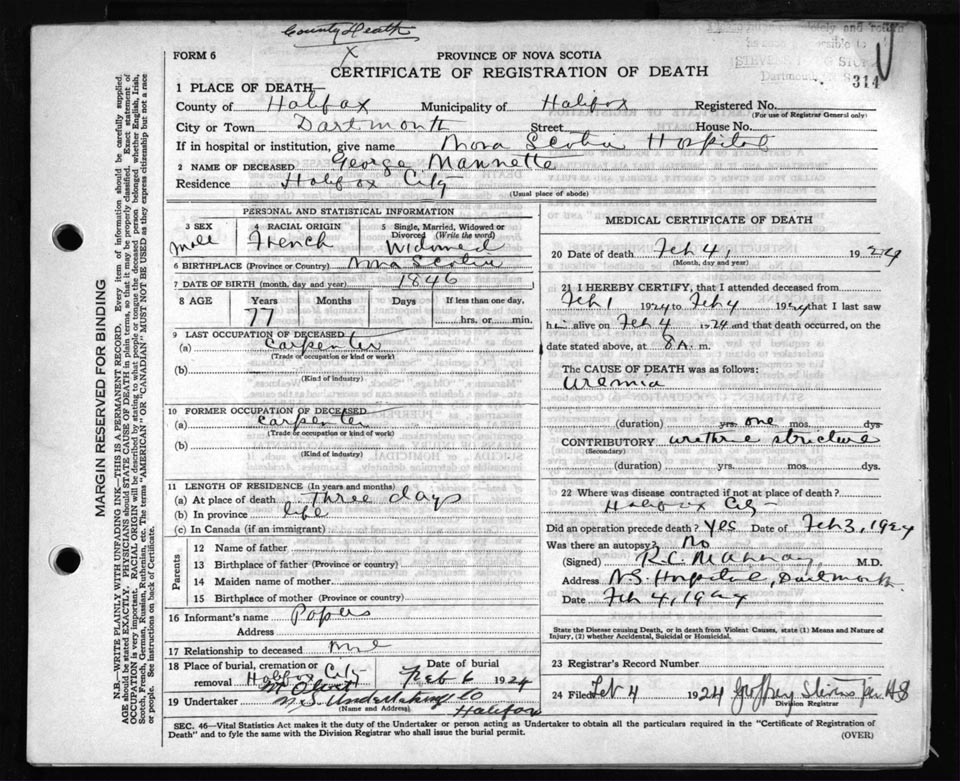 County Health
X
FORM 6
PROVINCE OF NOVA SCOTIA
CERTIFICATE OF REGISTRATION OF DEATH
314
1 PLACE OF DEATH
County of Halifax Municipality of Halifax Registered No.
(For use of Registrar General only)
City or Town Dartmouth Street House No.
If in hospital or institution, give name Nova Scotia Hospital
2 NAME OF DECEASED George Mannette
Residence Halifax City
(Usual place of abode)
PERSONAL AND STATISTICAL INFORMATION
3 SEX 4 RACIAL ORIGIN 5 Single, Married, Widowed or Divorced (Write the word)
Male French Widowed
6 BIRTHPLACE (Province or Country) Nova Scotia
7 DATE OF BIRTH (month, day and year) 1846
8 AGE Years Months Days If less than one day,
77 hrs. or min.
9 LAST OCCUPATION OF DECEASED
(a) Carpenter
(Trade or occupation or kind or work)
(b)
(Kind of industry)
10 FORMER OCCUPATION OF DECEASED
(a) Carpenter
(Trade or occupation or kind of work)
(b)
(Kind of industry)
11 LENGTH OF RESIDENCE (In years and months)
(a) At place of death three days
(b) In province life
(c) In Canada (if an immigrant)
Parents
12 Name of father
13 Birthplace of father (Province or country)
14 Maiden name of mother
15 Birthplace of mother (Province or country)
16 Informant's name Papers
Address
17 Relationship to deceased
18 Place of burial, cremation or removal Halifax City Date of burial
Mt Olivet Feb 6 1924
19 Undertaker N.S. Undertaking Co
(Name and Address) Halifax
MEDICAL CERTIFICATE OF DEATH
20 Date of death Feb 4, 1924
(Month, day and year)
21 I HEREBY CERTIFY, that I attended deceased from
Feb 1 1924 to Feb 4 1924 that I last saw
him alive on Feb 4 1924 and that death occurred, on the
date stated above, at 8 A. m.
The CAUSE OF DEATH was as follows:
Uremia
(duration) yrs. one mos. dys
CONTRIBUTORY urethric stricture
(Secondary)
(duration) yrs. mos. dys.
22 Where was disease contracted if not at place of death?
Halifax City
Did an operation precede death? Yes Date of Feb 3, 1924
Was there an autopsy? No
(Signed) R.C. M.D.
Address N.S. Hospital, Dartmouth
Date Feb 4, 1924
State the Disease causing Death, or in death from Violent Causes, state (1) Means and Nature of
Injury, (2) whether Accidental, Suicidal or Homicidal.
23 Registrar's Record Number
24 Filed Feb 4 1924 Geoffrey Stevens per HS
Division Registrar
SEC. 46—Vital Statistics Act makes it the duty of the Undertaker or person acting as Undertaker to obtain all the particulars required in the "Certificate of Registration of
Death" and to fyle the same with the Division Registrar who shall issue the burial permit.
(OVER)
MARGIN RESERVED FOR BINDING
N.B.—WRITE PLAINLY WITH UNFADING INK—THIS IS A PERMANENT RECORD. Every item of information should be carefully supplied.
AGE should be stated EXACTLY. PHYSICIANS should STATE CAUSE OF DEATH in plain terms, so that it may be properly classified. Exact statement of
OCCUPATION is very important. RACIAL ORIGIN will be described by stating to what people or tongue the deceased person belonged whether English, Irish,
Scotch, French, German, Russian, Ruthenian, etc. The terms "AMERICAN" or "CANADIAN" MUST NOT BE USED as they express citizenship but not a race
or people. See instructions on back of Certificate.